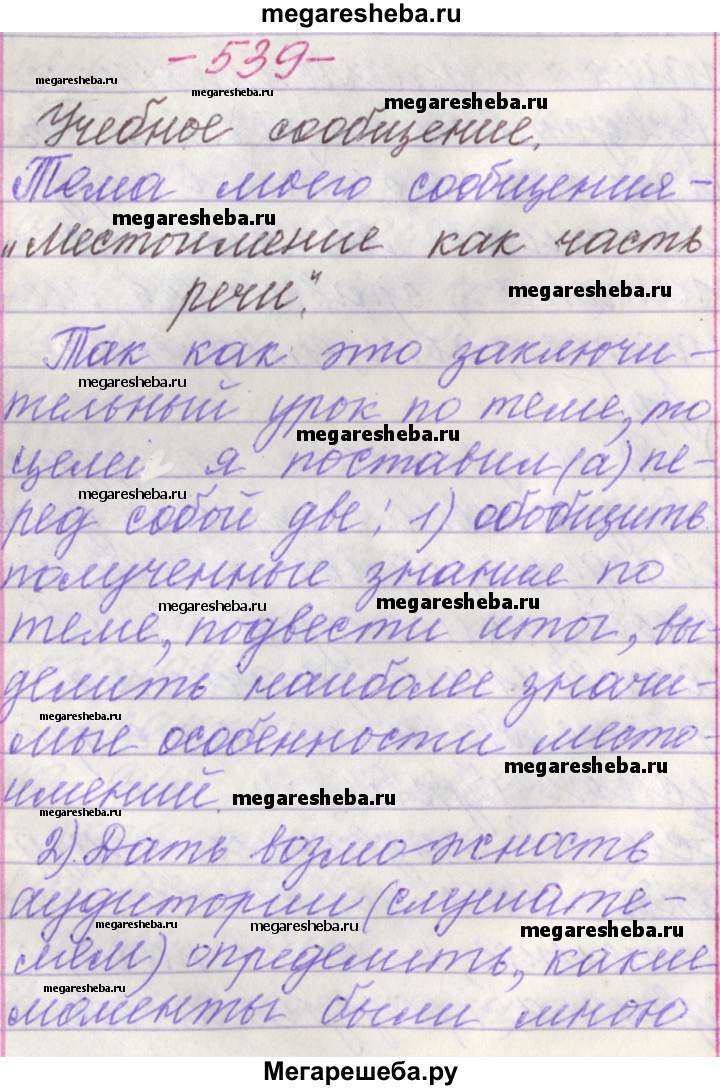 megaresheba.ru
- 539 -
megaresheba.ru
megaresheba.ru
megaresheba.ru
Учебное сообщение.
Тема моего сообщения -
megaresheba.ru
„Местоимение как часть
речи."
megaresheba.ru
Так как это заключи -
megaresheba.ru
тельный урок по теме, то
megaresheba.ru
целей я поставил(а) пе-
megaresheba.ru
ред собой две: 1) обобщить
полученные знания по
megaresheba.ru
megaresheba.ru
теме, подвести итог, вы-
делить наиболее значи-
megaresheba.ru
мые особенности место-
megaresheba.ru
имений.
megaresheba.ru
2) Дать возможность
аудитории (слушате-
megaresheba.ru
megaresheba.ru
megaresheba.ru
лям) определить, какие
megaresheba.ru
моменты были мною
Мегарешеба.ру